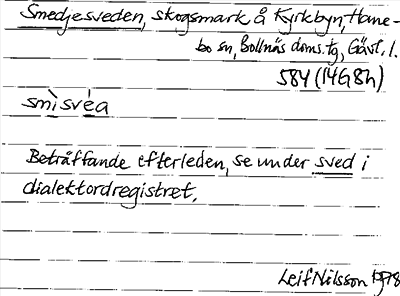 Smedjesveden, skogsmark å Kyrkbyn, Hane-
bo sn, Bollnäs doms. tg, Gävl. l.
584 (14G8h)
smìsvéa
Beträffande efterleden, se under sved i
dialektordregistret.
Leif Nilsson 1978